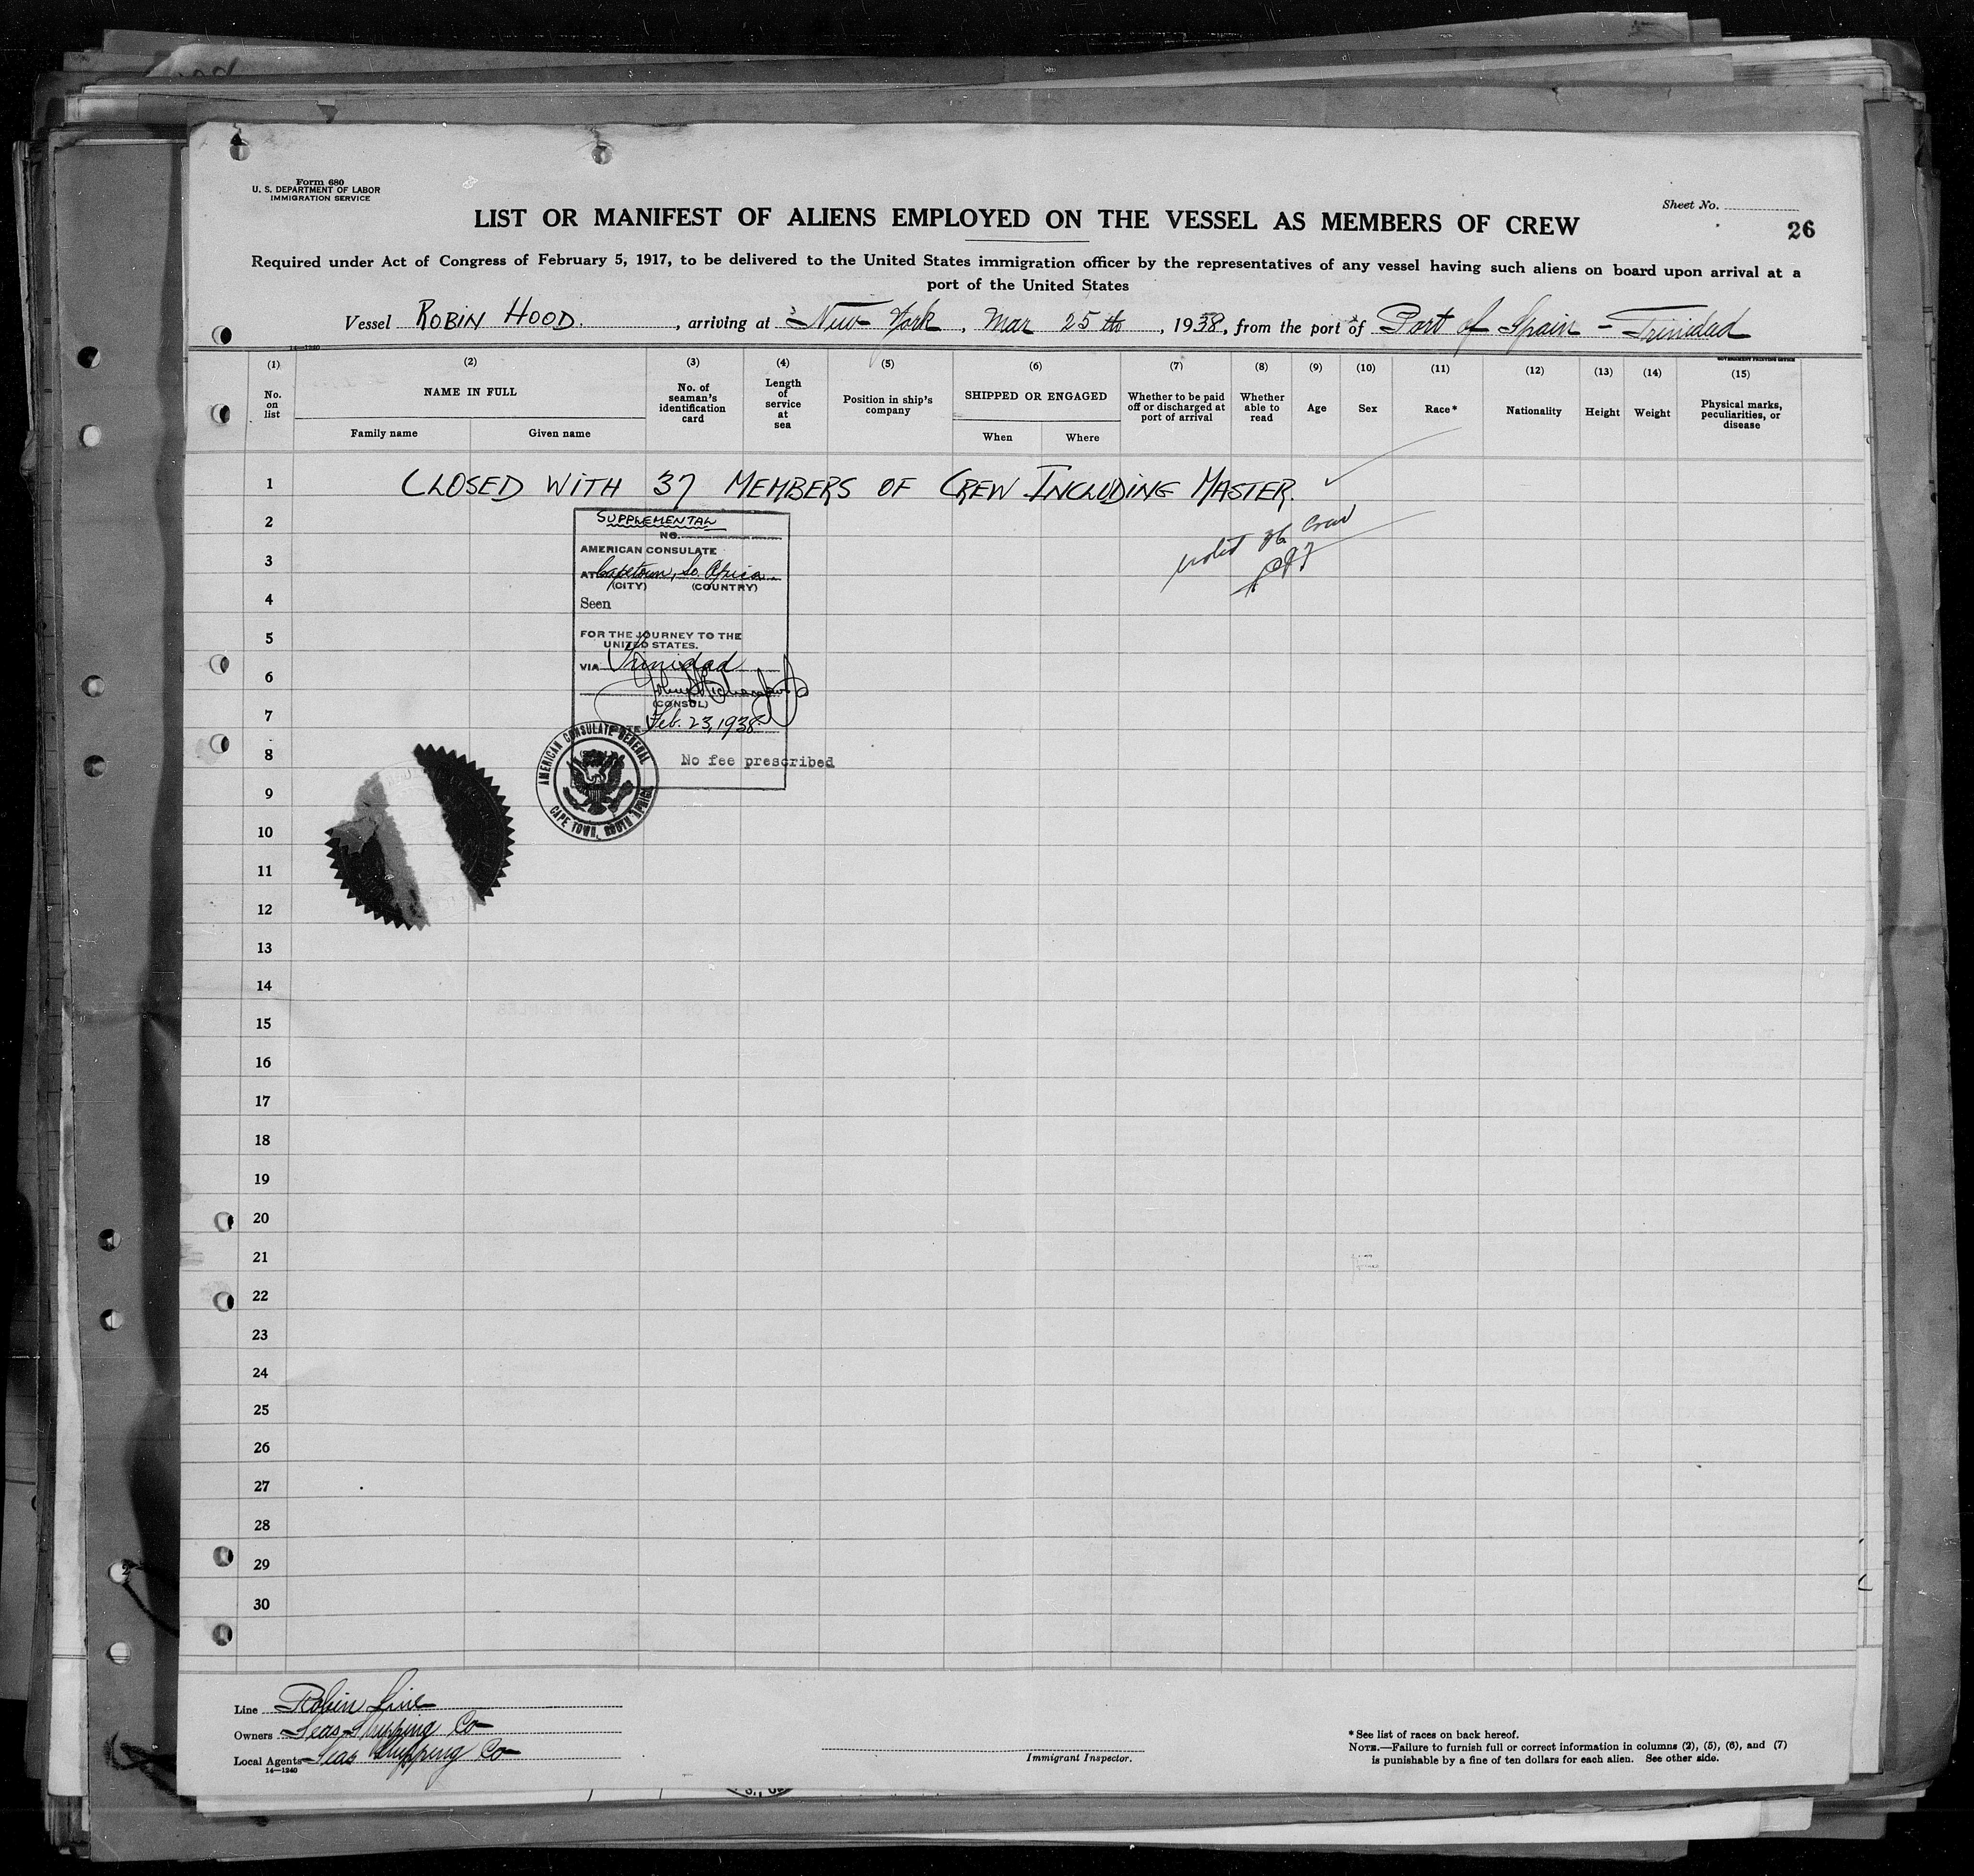 Form 680
U. S. DEPARTMENT OF LABOR
IMMIGRATION SERVICE
Sheet No.
26
LIST OR MANIFEST OF ALIENS EMPLOYED ON THE VESSEL AS MEMBERS OF CREW
Required under Act of Congress of February 5, 1917, to be delivered to the United States immigration officer by the representatives of any vessel having such aliens on board upon arrival at a
port of the United States
Vessel ROBIN HOOD. , arriving at New York , Mar 25th , 1938, from the port of Port of Spain - Trinidad
14—1240
GOVERNMENT PRINTING OFFICE
(1) (2) (3) (4) (5) (6) (7) (8) (9) (10) (11) (12) (13) (14) (15)
No. on list
NAME IN FULL
Family name
Given name
No. of seaman's identification card
Length of service at sea
Position in ship's company
SHIPPED OR ENGAGED
When
Where
Whether to be paid off or discharged at port of arrival
Whether able to read
Age
Sex
Race*
Nationality
Height
Weight
Physical marks, peculiarities, or disease
1 CLOSED WITH 37 MEMBERS OF CREW INCLUDING MASTER.
2
3
4
5
6
7
8
9
10
11
12
13
14
15
16
17
18
19
20
21
22
23
24
25
26
27
28
29
30
36 Crew
SUPPLEMENTAL
NO.
AMERICAN CONSULATE
AT Capetown, So. Africa
(CITY) (COUNTRY)
Seen
FOR THE JOURNEY TO THE
UNITED STATES.
VIA Trinidad
(CONSUL)
DATE Feb. 23, 1938.
No fee prescribed
AMERICAN CONSULATE GENERAL
CAPE TOWN, SOUTH AFRICA
Line Robin Line
Owners Seas Shipping Co
Local Agents Seas Shipping Co
14—1240
Immigrant Inspector.
* See list of races on back hereof.
NOTE.—Failure to furnish full or correct information in columns (2), (5), (6), and (7)
is punishable by a fine of ten dollars for each alien. See other side.